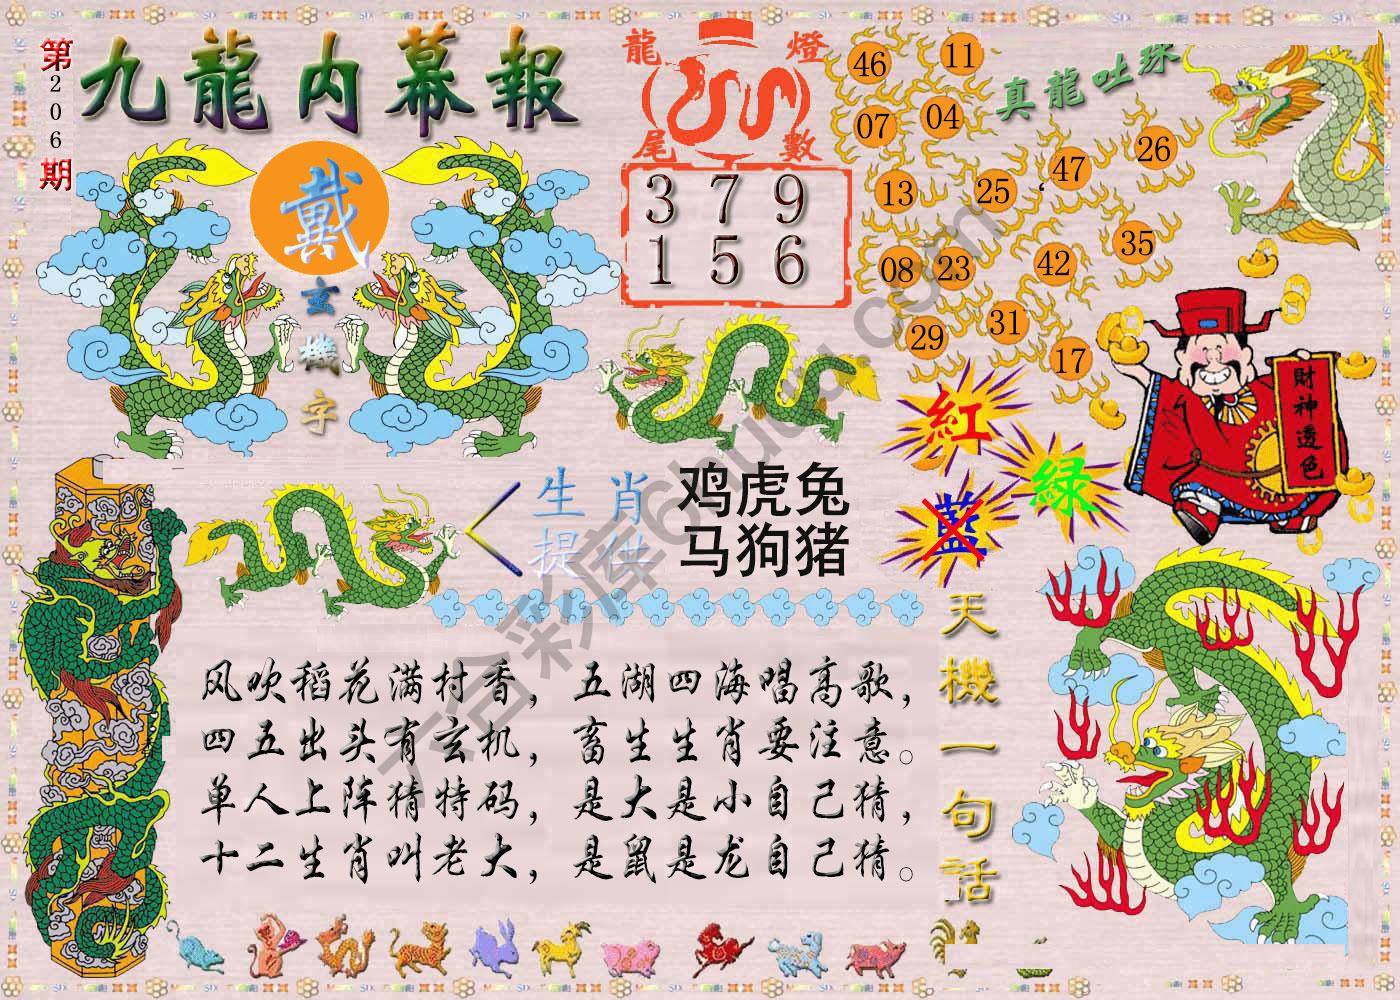 第206期
九龍内幕報
戴
玄機字
龍燈
尾數
3 7 9
1 5 6
真龍吐珠
46 11
07 04
13 25 47 26
08 23 42 35
29 31 17
財神透色
紅
綠
藍
生肖
提供
鸡虎兔
马狗猪
天機一句話
风吹稻花满村香，五湖四海唱高歌，
四五出头有玄机，畜生生肖要注意。
单人上阵猜特码，是大是小自己猜，
十二生肖叫老大，是鼠是龙自己猜。
六合彩库6huu.com